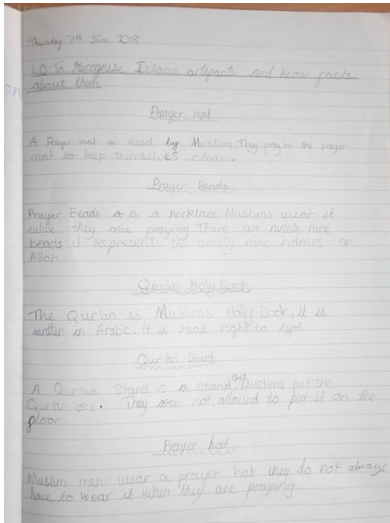 Thursday 7th June 2018
LO To Recognise Islamic artefacts and know facts
about them.
Prayer mat
A Prayer mat is used by Muslims They pray on the prayer
mat to keep themselves clean.
Prayer Beads
Prayer Beads is a necklace Muslims wear it
while they are praying. There are ninety nine
beads it represents the ninety nine names of
Allah.
Qur'an Holy Book
The Qur'an is Muslims Holy Book, it is
written in Arabic. It is read right to left
Qur'an Stand
A Qur'an Stand is a stand that Muslims put the
Qur'an on. They are not allowed to put it on the
floor.
Prayer hat
Muslim men wear a prayer hat they do not always
have to wear it when they are praying.